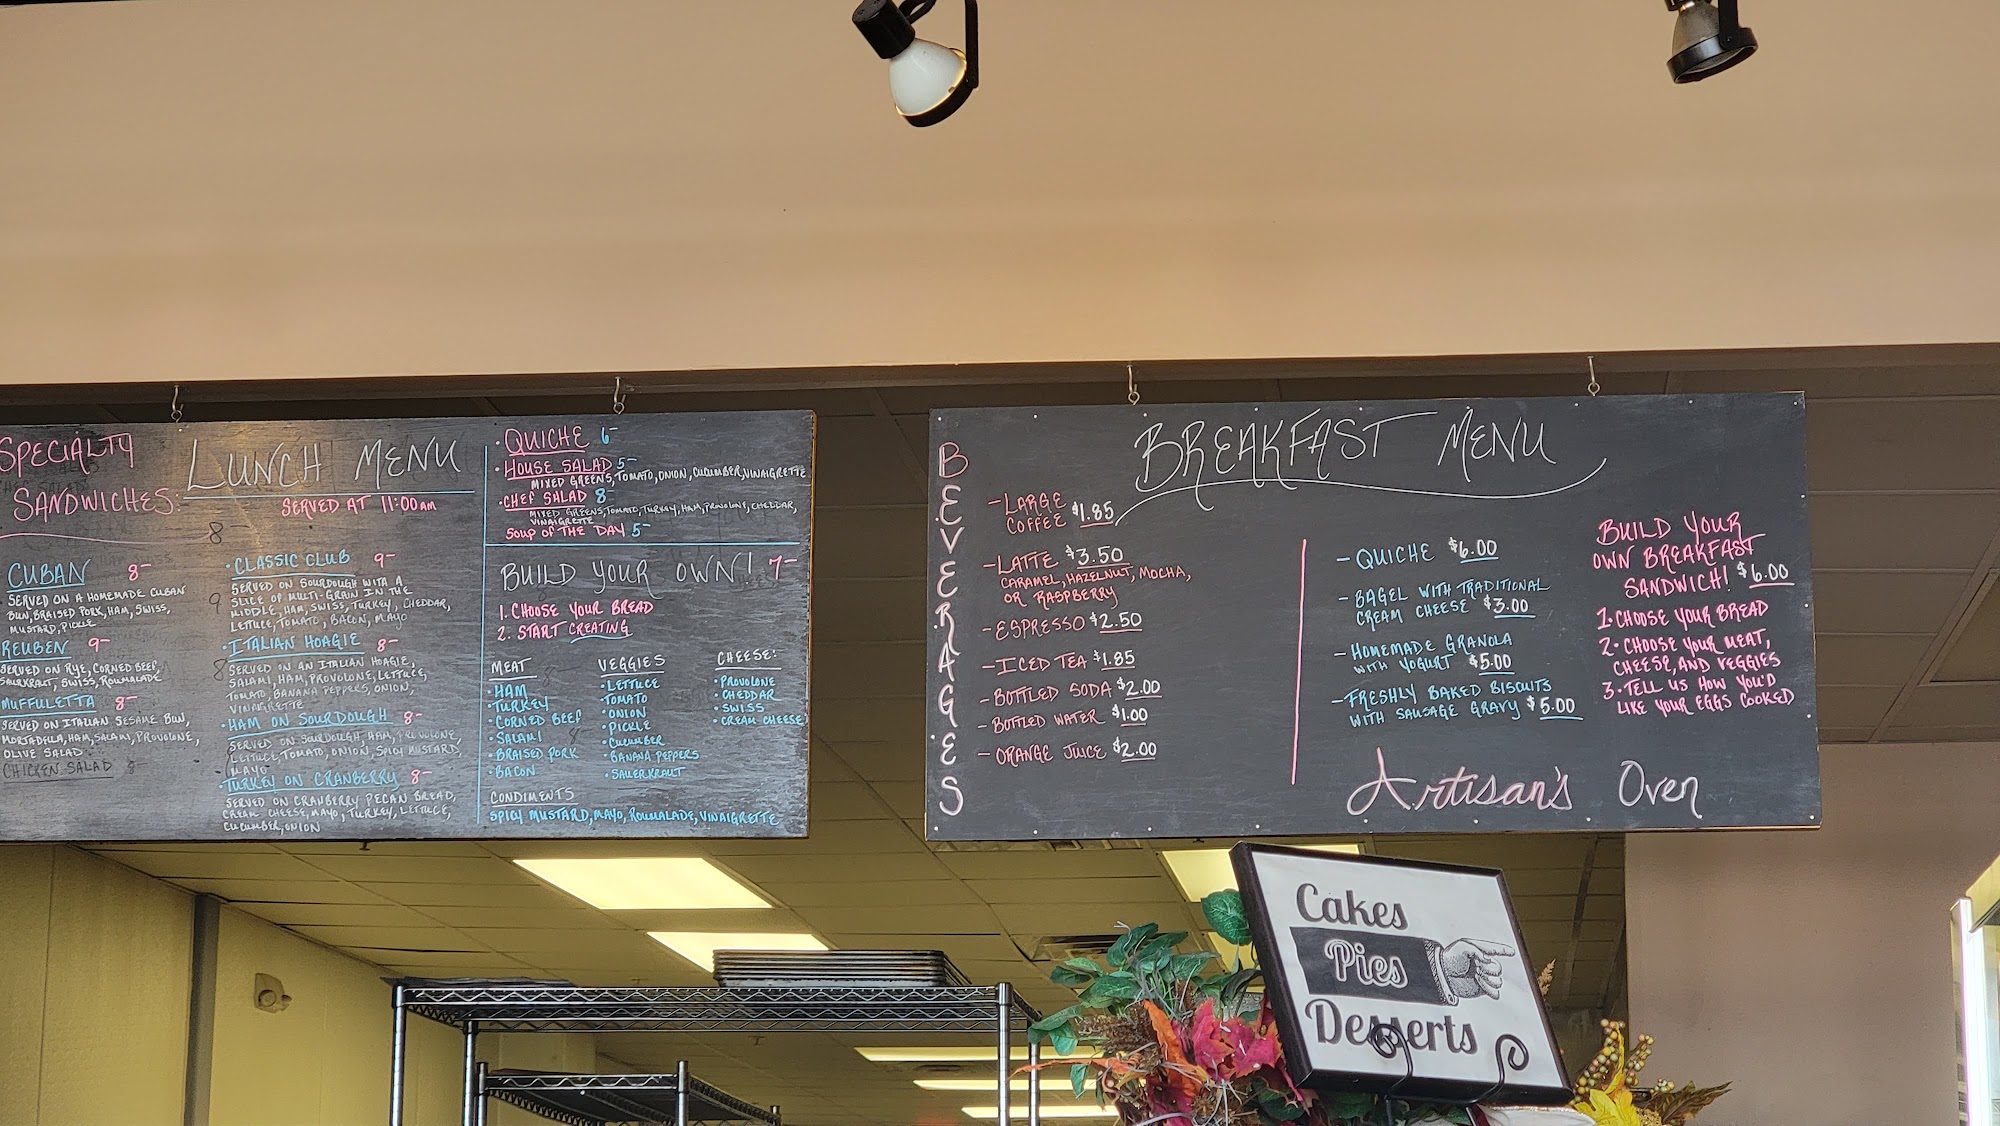 SPECIALTY
SANDWICHES:
LUNCH MENU
SERVED AT 11:00 AM
CUBAN 8-
SERVED ON A HOMEMADE CUBAN
BUN, BRAISED PORK, HAM, SWISS,
MUSTARD, PICKLE
REUBEN 9-
SERVED ON RYE, CORNED BEEF,
SAURKRAUT, SWISS, ROUMALADE
MUFFULETTA 8-
SERVED ON ITALIAN SESAME BUN,
MORTADELLA, HAM, SALAMI, PROVOLONE,
OLIVE SALAD
CHICKEN SALAD 8
• CLASSIC CLUB 9-
SERVED ON SOURDOUGH WITH A
SLICE OF MULTI-GRAIN IN THE
MIDDLE, HAM, SWISS, TURKEY, CHEDDAR,
LETTUCE, TOMATO, BACON, MAYO
• ITALIAN HOAGIE 8-
SERVED ON AN ITALIAN HOAGIE,
SALAMI, HAM, PROVOLONE, LETTUCE,
TOMATO, BANANA PEPPERS, ONION,
VINAIGRETTE
• HAM ON SOURDOUGH 8-
SERVED ON SOURDOUGH, HAM, PROVOLONE,
LETTUCE, TOMATO, ONION, SPICY MUSTARD,
MAYO
• TURKEY ON CRANBERRY 8-
SERVED ON CRANBERRY PECAN BREAD,
CREAM CHEESE, MAYO, TURKEY, LETTUCE,
CUCUMBER, ONION
• QUICHE 6-
• HOUSE SALAD 5-
MIXED GREENS, TOMATO, ONION, CUCUMBER, VINAIGRETTE
• CHEF SALAD 8-
MIXED GREENS, TOMATO, TURKEY, HAM, PROVOLONE, CHEDDAR,
VINAIGRETTE
SOUP OF THE DAY 5-
BUILD YOUR OWN! 7-
1. CHOOSE YOUR BREAD
2. START CREATING
MEAT
• HAM
• TURKEY
• CORNED BEEF
• SALAMI
• BRAISED PORK
• BACON
VEGGIES
• LETTUCE
• TOMATO
• ONION
• PICKLE
• CUCUMBER
• BANANA PEPPERS
• SAUERKRAUT
CHEESE:
• PROVOLONE
• CHEDDAR
• SWISS
• CREAM CHEESE
CONDIMENTS
SPICY MUSTARD, MAYO, ROUMALADE, VINAIGRETTE
BREAKFAST MENU
BEVERAGES
- LARGE
COFFEE $1.85
- LATTE $3.50
CARAMEL, HAZELNUT, MOCHA,
OR RASPBERRY
- ESPRESSO $2.50
- ICED TEA $1.85
- BOTTLED SODA $2.00
- BOTTLED WATER $1.00
- ORANGE JUICE $2.00
- QUICHE $6.00
- BAGEL WITH TRADITIONAL
CREAM CHEESE $3.00
- HOMEMADE GRANOLA
WITH YOGURT $5.00
- FRESHLY BAKED BISCUITS
WITH SAUSAGE GRAVY $5.00
BUILD YOUR
OWN BREAKFAST
SANDWICH! $6.00
1. CHOOSE YOUR BREAD
2. CHOOSE YOUR MEAT,
CHEESE, AND VEGGIES
3. TELL US HOW YOU'D
LIKE YOUR EGGS COOKED
Artisan's Oven
Cakes
Pies
Desserts